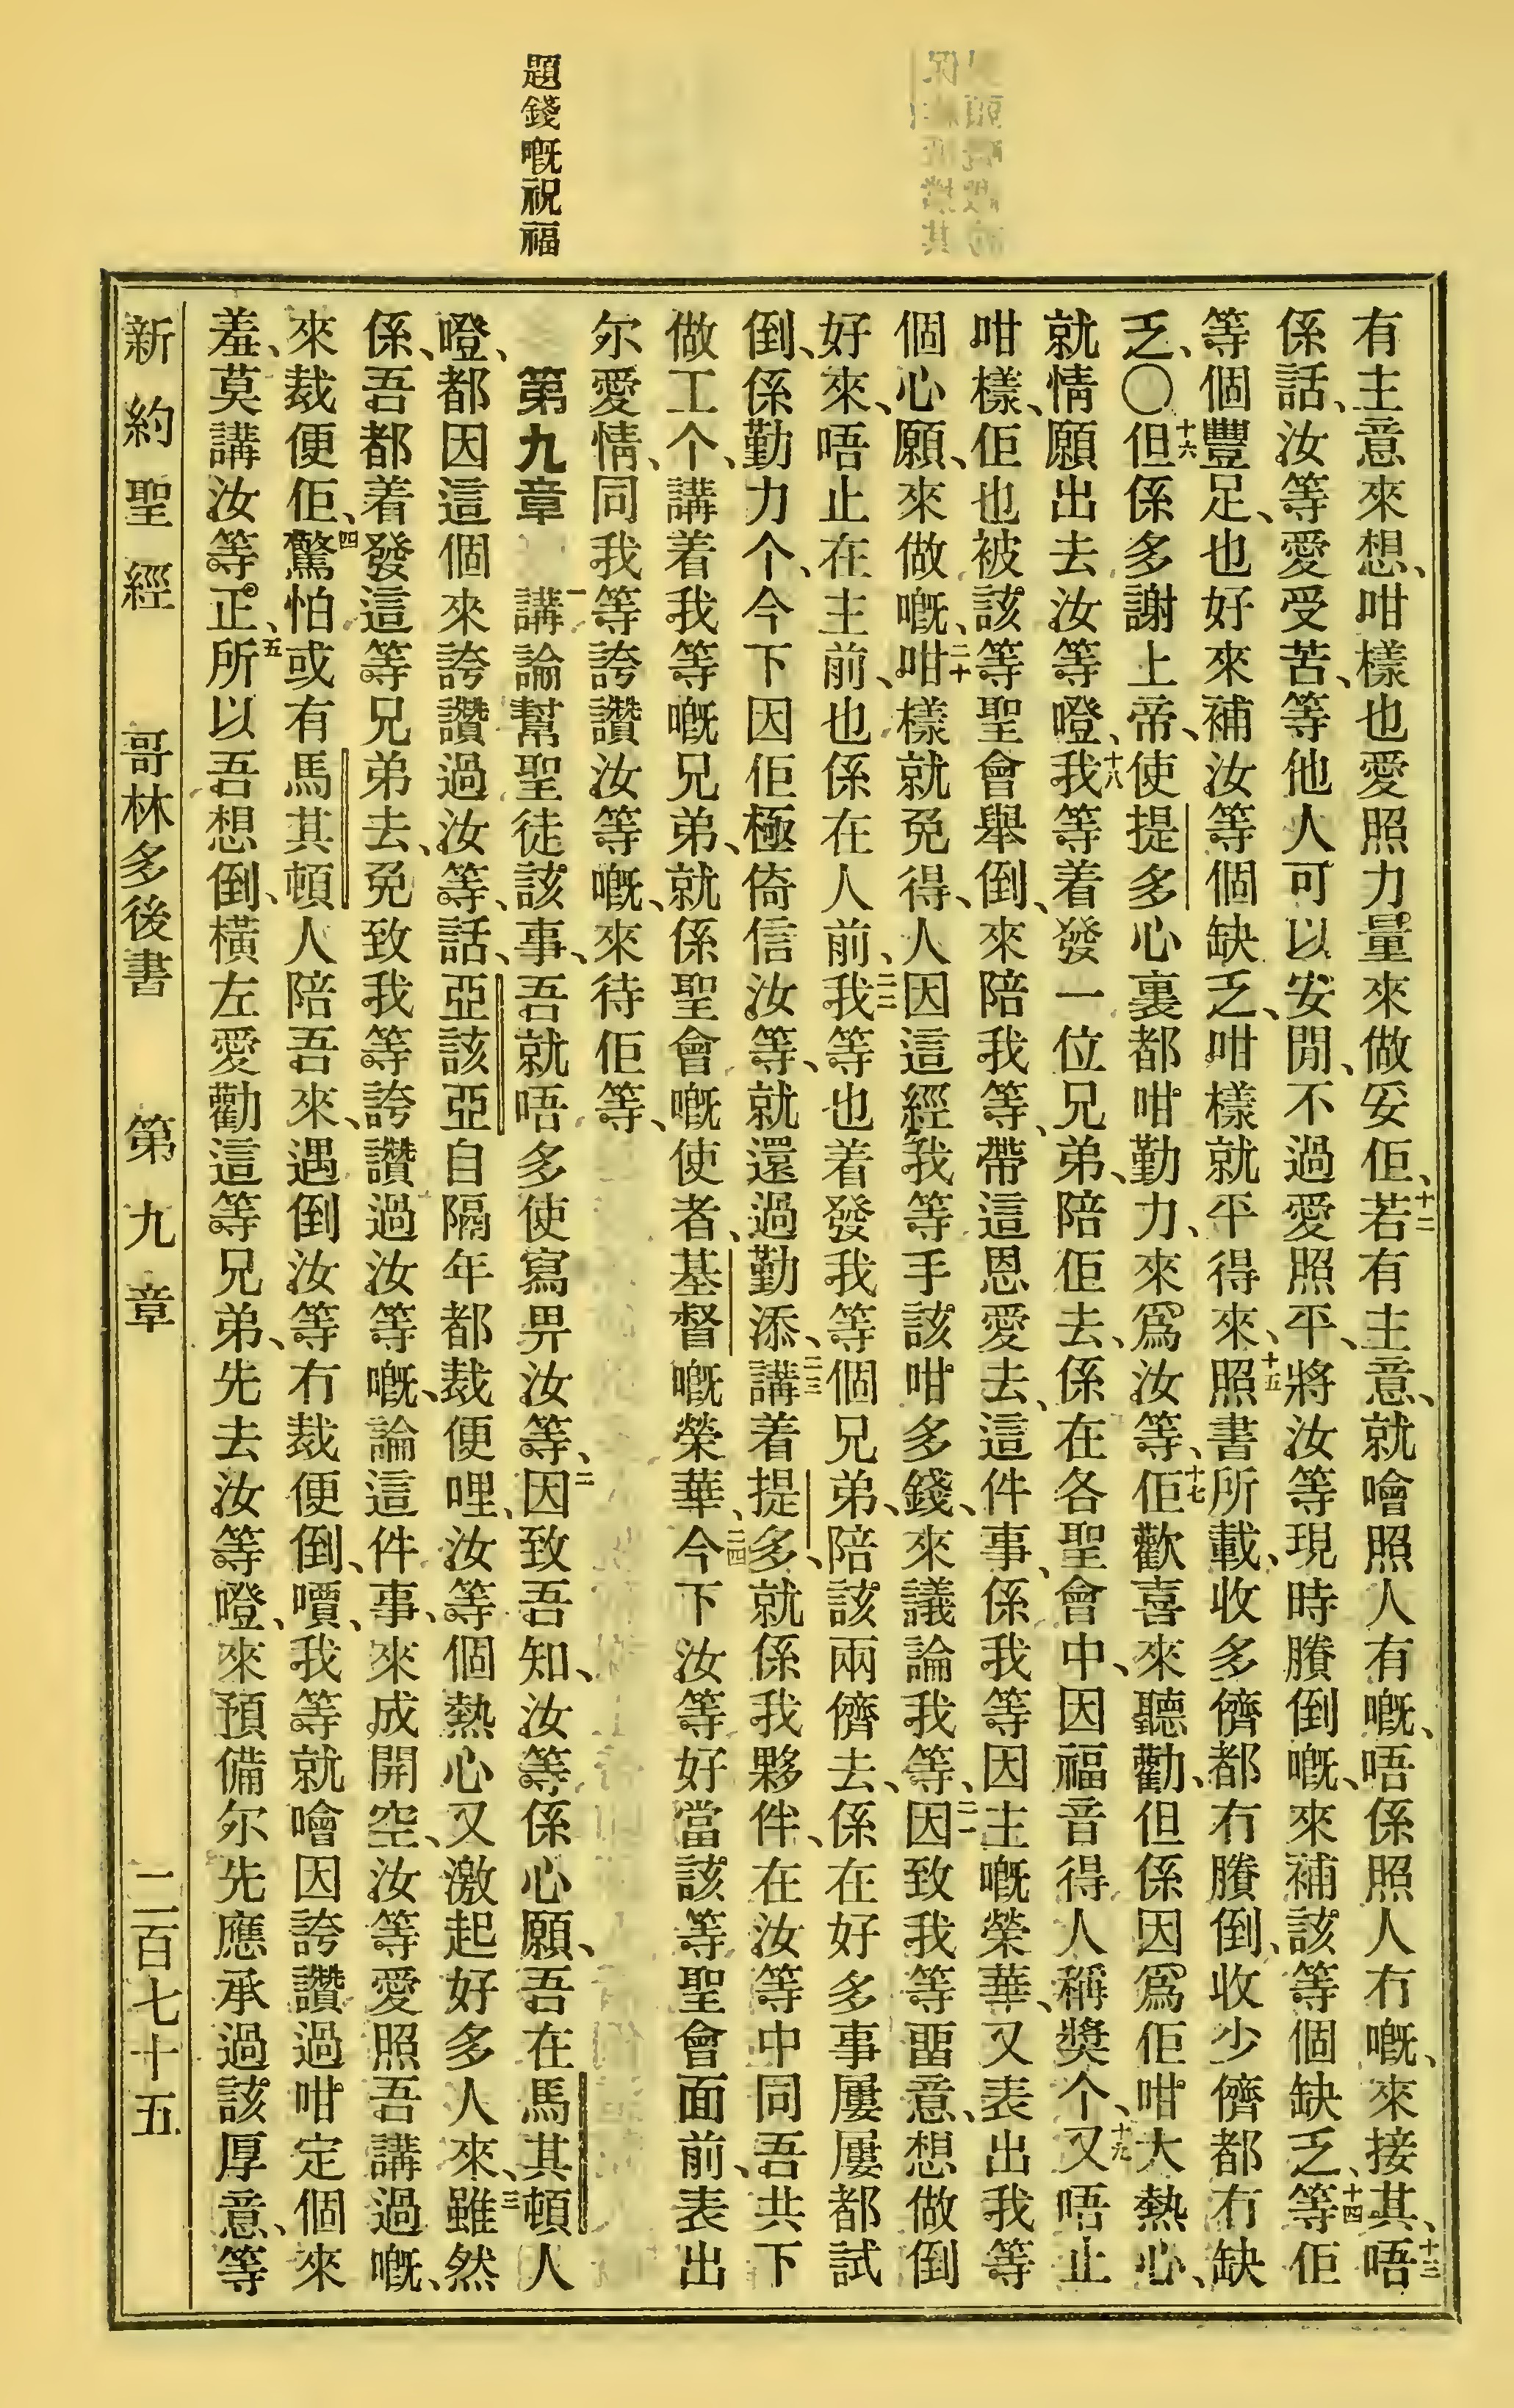 題錢嘅祝福
有主意來想、咁樣也愛照力量來做妥佢、十二若有主意、就噲照人有嘅、唔係照人冇嘅、來接其、十三唔
係話、汝等愛受苦、等他人可以安閒、不過愛照平、將汝等現時賸倒嘅、來補該等個缺乏、十四等佢
等個豐足、也好來補汝等個缺乏、咁樣就平得來、十五照書所載、收多儕都冇賸倒、收少儕都冇缺
乏、〇十六但係多謝上帝、使提多心裏都咁勤力、來爲汝等、十七佢歡喜來聽勸、但係因爲佢咁大熱心、
就情願出去汝等噔、十八我等着發一位兄弟、陪佢去、係在各聖會中、因福音得人稱獎个、十九又唔止
咁樣、佢也被該等聖會舉倒、來陪我等、帶這恩愛去、這件事、係我等因主嘅榮華、又表出我等
個心願、來做嘅、二十咁樣就免得、人因這經我等手該咁多錢、來議論我等、二一因致我等畱意、想做倒
好來、唔止在主前、也係在人前、二二我等也着發我等個兄弟、陪該兩儕去、係在好多事屢屢都試
倒、係勤力个、今下因佢極倚信汝等、就還過勤添、二三講着提多、就係我夥伴、在汝等中同吾共下
做工个、講着我等嘅兄弟、就係聖會嘅使者、基督嘅榮華、二四今下汝等好當該等聖會面前、表出
尔愛情、同我等誇讚汝等嘅、來待佢等、
第九章 一講論幫聖徒該事、吾就唔多使寫畀汝等、二因致吾知、汝等係心願、吾在馬其頓人
噔、都因這個來誇讚過汝等、話、亞該亞自隔年都裁便哩、汝等個熱心又激起好多人來、三雖然
係、吾都着發這等兄弟去、免致我等誇讚過汝等嘅、論這件事、來成開空、汝等愛照吾講過嘅、
來裁便佢、四驚怕或有馬其頓人陪吾來、遇倒汝等冇裁便倒、嘖、我等就噲因誇讚過咁定個來
羞、莫講汝等正、五所以吾想倒、橫左愛勸這等兄弟、先去汝等噔、來預備尔先應承過該厚意、等
新約聖經 哥林多後書 第九章 二百七十五